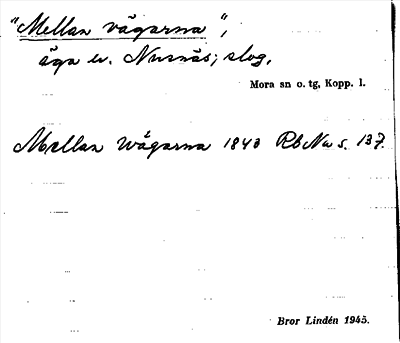 "Mellan vägarna",
äga ev. Nusnäs; slog,
Mora sn o. tg, Kopp. l.
Mellan Wägarna 1843 Rb Nu s. 137.
Bror Lindén 1945.